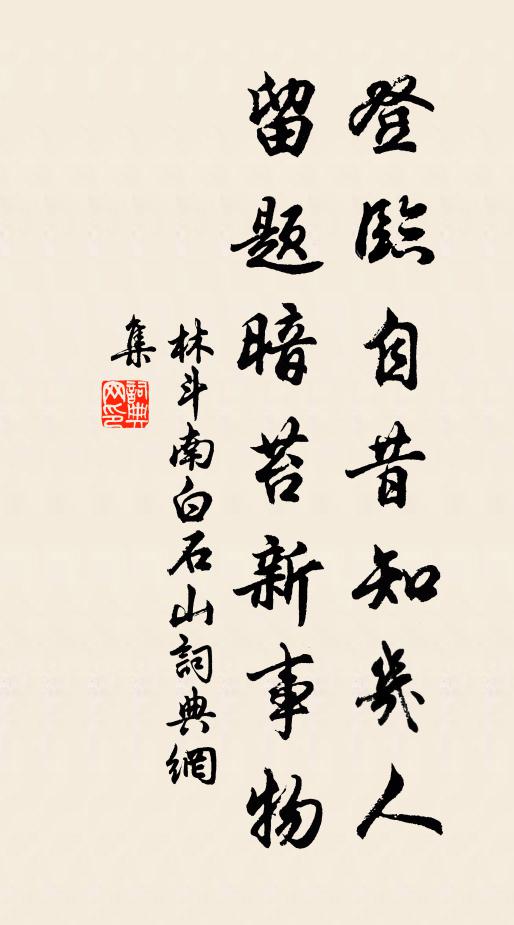 登臨自昔知幾人
留題暗苔新事物
林斗南白石山詞典網
集
詞典
网印